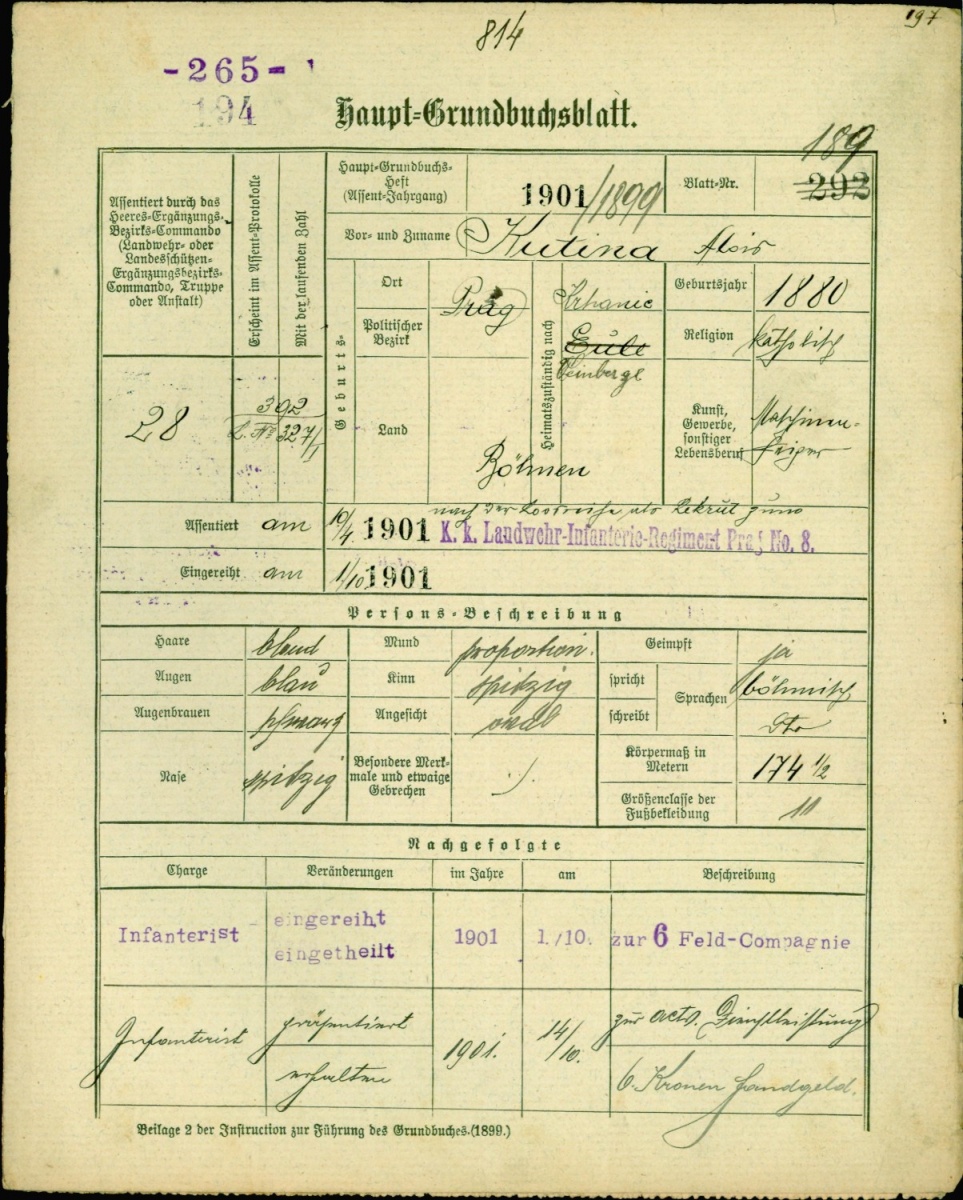 814
197
-265-
194
Haupt-Grundbuchsblatt.
189
Assentiert durch das
Heeres-Ergänzungs-
Bezirks-Commando
(Landwehr- oder
Landesschützen-
Ergänzungsbezirks-
Commando, Truppe
oder Anstalt)
Erscheint im Assent-Protokolle
Mit der laufenden Zahl
Haupt-Grundbuchs-
Heft
(Assent-Jahrgang)
1901/1899
Blatt-Nr.
292
Vor- und Zuname
Kutina Alois
Geburts-
Ort
Prag
Politischer
Bezirk
Land
Böhmen
Heimatszuständig nach
Krhanic
Eule
Weinberge
Geburtsjahr
1880
Religion
katholisch
Kunst,
Gewerbe,
sonstiger
Lebensberuf
Maschinen-
28
392
327/1
Assentiert am
10/4. 1901
nach der Losreihe als Rekrut zum
K. k. Landwehr-Infanterie-Regiment Prag No. 8.
Eingereiht am
1/10 1901
Persons-Beschreibung
Haare
blond
Mund
proportion.
Geimpft
ja
Augen
blau
Kinn
spitzig
spricht
Sprachen
böhmisch
Augenbrauen
schwarz
Angesicht
oval
schreibt
dto
Nase
spitzig
Besondere Merk-
male und etwaige
Gebrechen
./.
Körpermaß in
Metern
174 1/2
Größenclasse der
Fußbekleidung
11
Nachgefolgte
Charge
Veränderungen
im Jahre
am
Beschreibung
Infanterist
eingereiht
eingetheilt
1901
1./10.
zur 6 Feld-Compagnie
Infanterist
präsentiert
erhalten
1901.
14/10.
zur activ. Dienstleistung
6. Kronen Handgeld.
Beilage 2 der Instruction zur Führung des Grundbuches. (1899.)